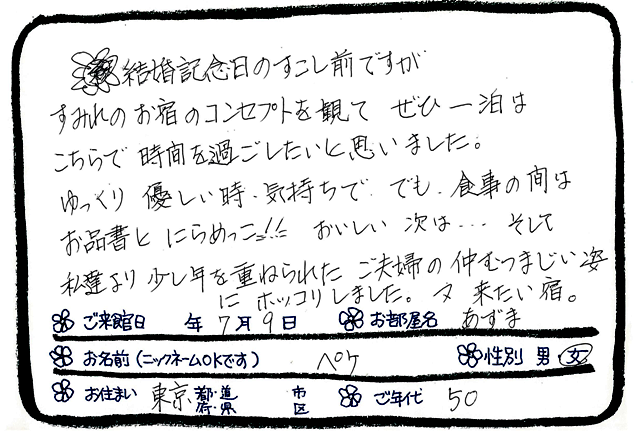 結婚記念日のすこし前ですが
すみれのお宿のコンセプトを観て ぜひ一泊は
こちらで時間を過ごしたいと思いました。
ゆっくり 優しい時・気持ちで でも、食事の間は
お品書と にらめっこ!! おいしい 次は… そして
私達より少し年を重ねられたご夫婦の仲むつまじい姿
にホッコリしました。又来たい宿。
ご来館日 年 7月9日 お部屋名 あずま
お名前(ニックネームOKです) ペケ 性別 男 女
お住まい 東京 都・道 府・県 市 区 ご年代 50